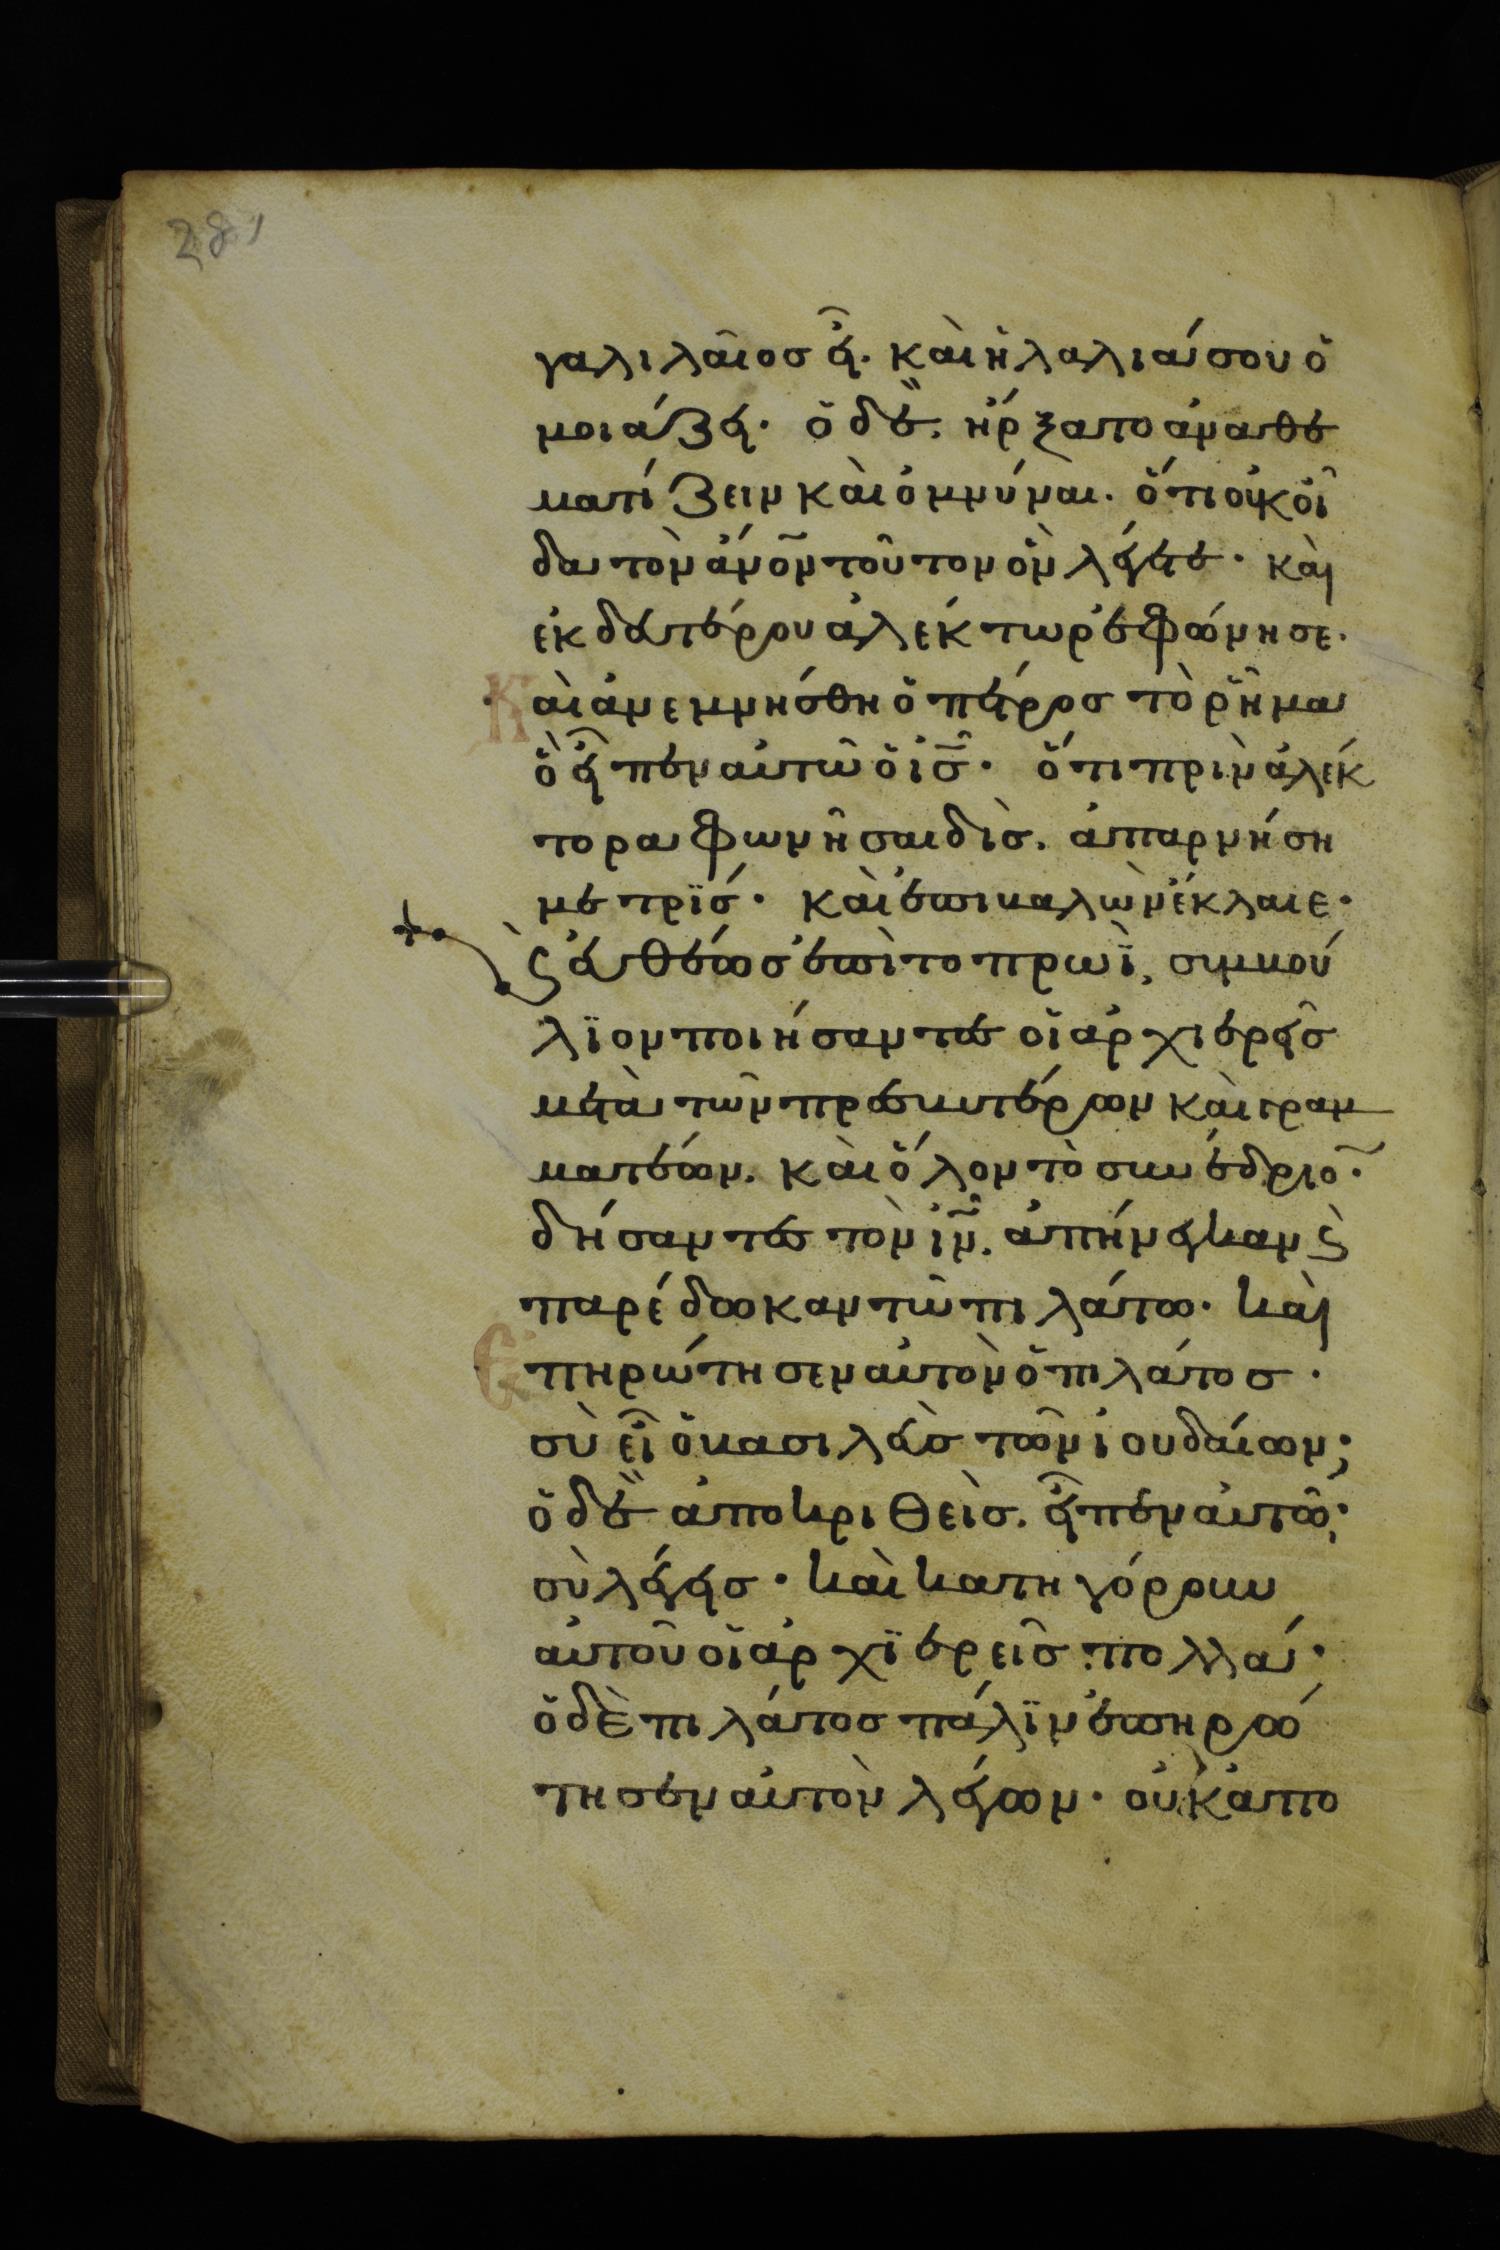 281
γαλιλαῖος εἶ. καὶ ἡ λαλιά σου ὁ
μοιάζει. ὁ δὲ. ἤρξατο ἀναθε
ματίζειν καὶ ὀμνύναι. ὅτι οὐκ οἶ
δα τὸν ἀνον τοῦτον ὃν λέγετε. καὶ
ἐκ δευτέρου ἀλέκτωρ ἐφώνησε.
Καὶ ἀνεμνήσθη ὁ πέτρος τὸ ῥῆμα
ὃ εἶπεν αὐτῶ ὁ ις. ὅτι πρὶν ἀλέκ
τορα φωνῆσαι δὶς. ἀπαρνήση
με τρΐς. καὶ ἐπιβαλὼν ἔκλαιε.
ϗ εὐθέως ἐπὶ τὸ πρωῒ, συμβού
λϊον ποιήσαντες οἱ ἀρχιερεῖς
μετὰ τῶν πρεσβυτέρων καὶ γραμ
ματέων. καὶ ὅλον τὸ συνέδριο̅.
δήσαντες τὸν ιν. ἀπήνεγκαν ϗ
παρέδωκαν τῶ πιλάτω. καὶ
Επηρώτησεν αὐτὸν ὁ πιλάτος.
σὺ εἶ ὁ βασιλεὺς τῶν ἰουδαίων;
ὁ δὲ ἀποκριθεὶς. εἶπεν αὐτῶ;
σὺ λέγεις. καὶ κατηγόρουν
αὐτοῦ οἱ ἀρχϊερεῖς πολλά.
ὁ δὲ πιλάτος πάλϊν ἐπηρώ
τησεν αὐτὸν λέγων. οὐκ ἀπο